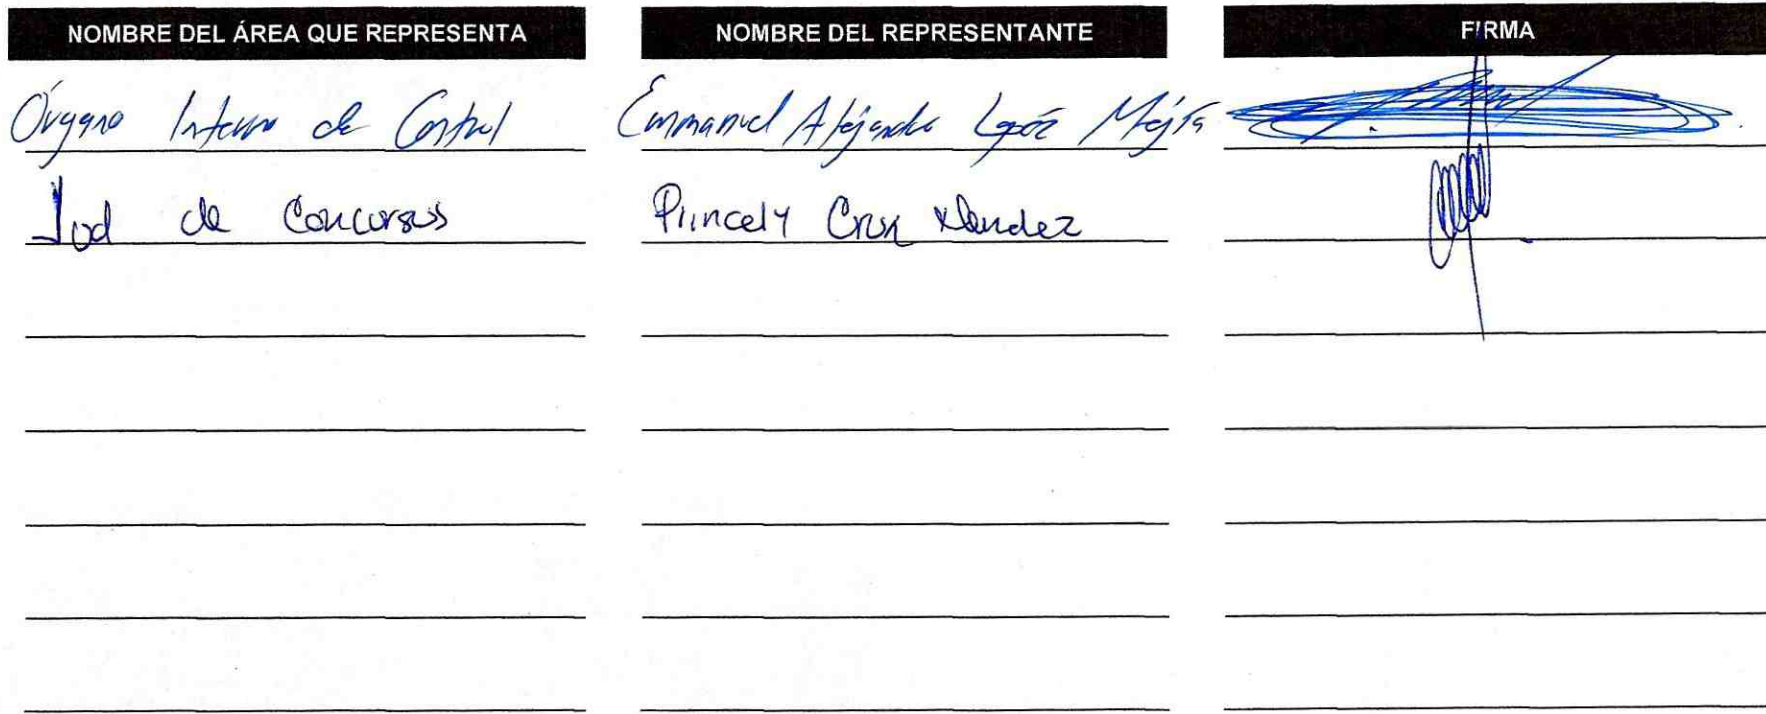 NOMBRE DEL ÁREA QUE REPRESENTA NOMBRE DEL REPRESENTANTE FIRMA
Órgano Interno de Control Emmanuel Alejandro López Mejía
Jud de Concursos Princely Cruz Mendez